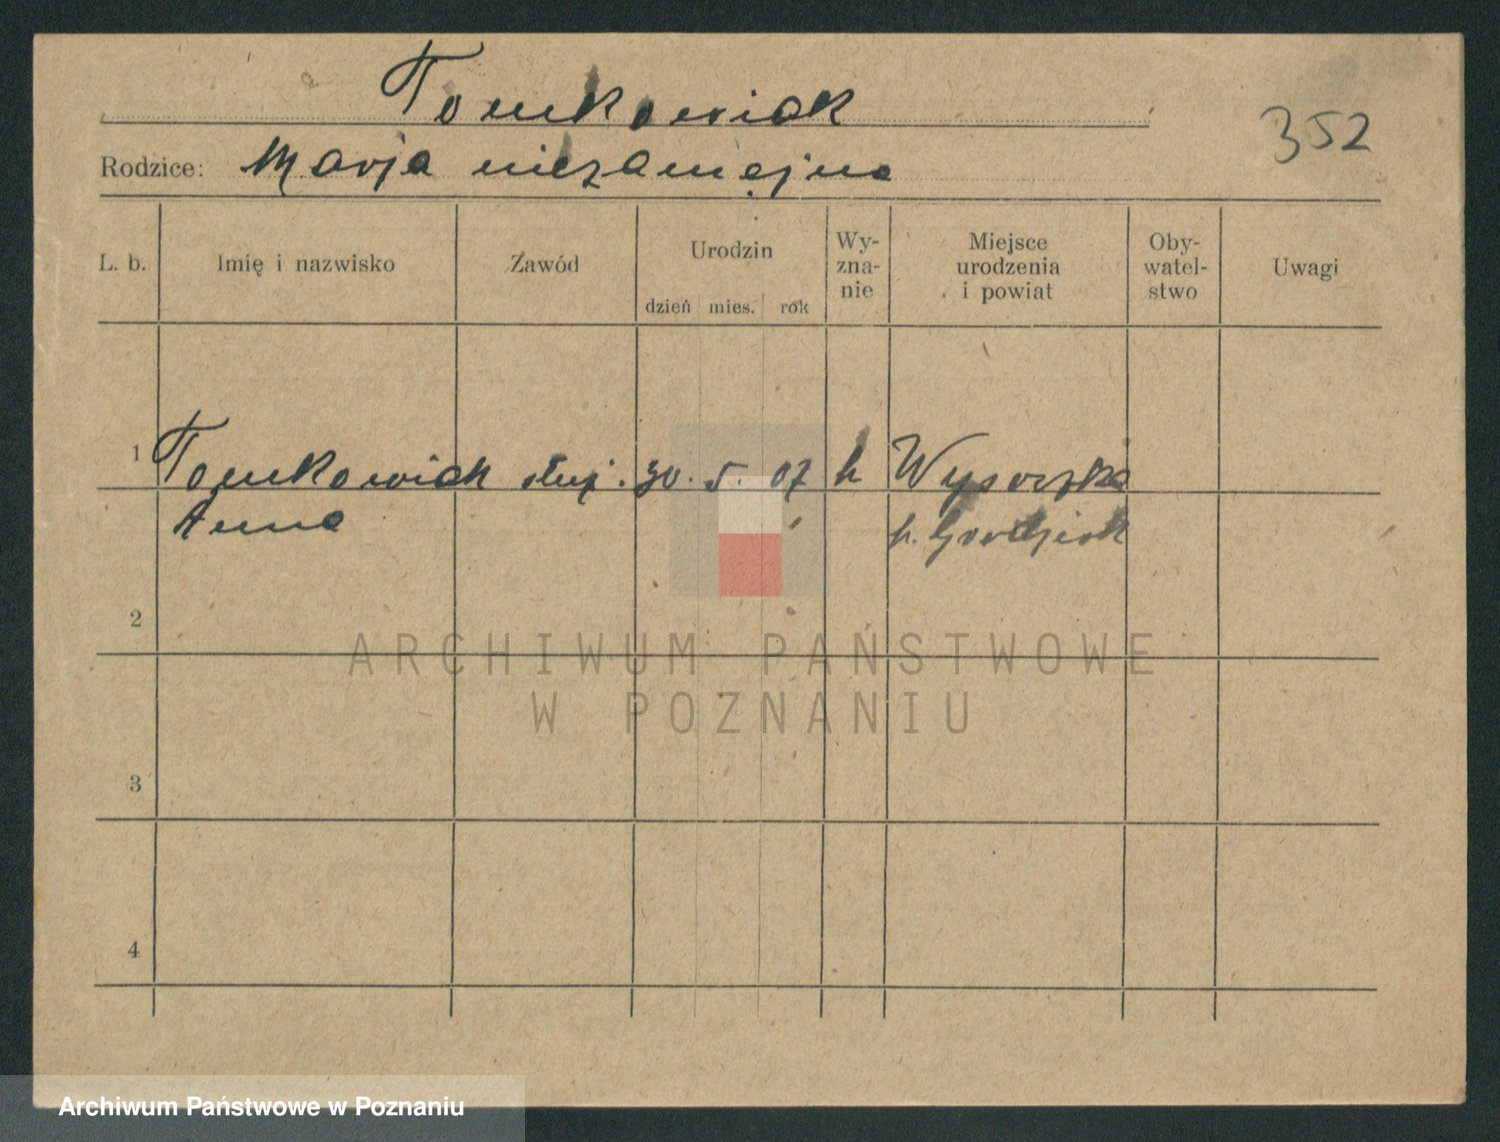 Tomkowiak
352
Rodzice: Marja niezamężna
L. b. Imię i nazwisko Zawód Urodzin dzień mies. rok Wy-zna-nie Miejsce urodzenia i powiat Oby-watel-stwo Uwagi
1 Tomkowiak służ. 30. 5. 07 k Wysoczka
Anna p. Grodzisk
2
ARCHIWUM PAŃSTWOWE
W POZNANIU
3
4
Archiwum Państwowe w Poznaniu